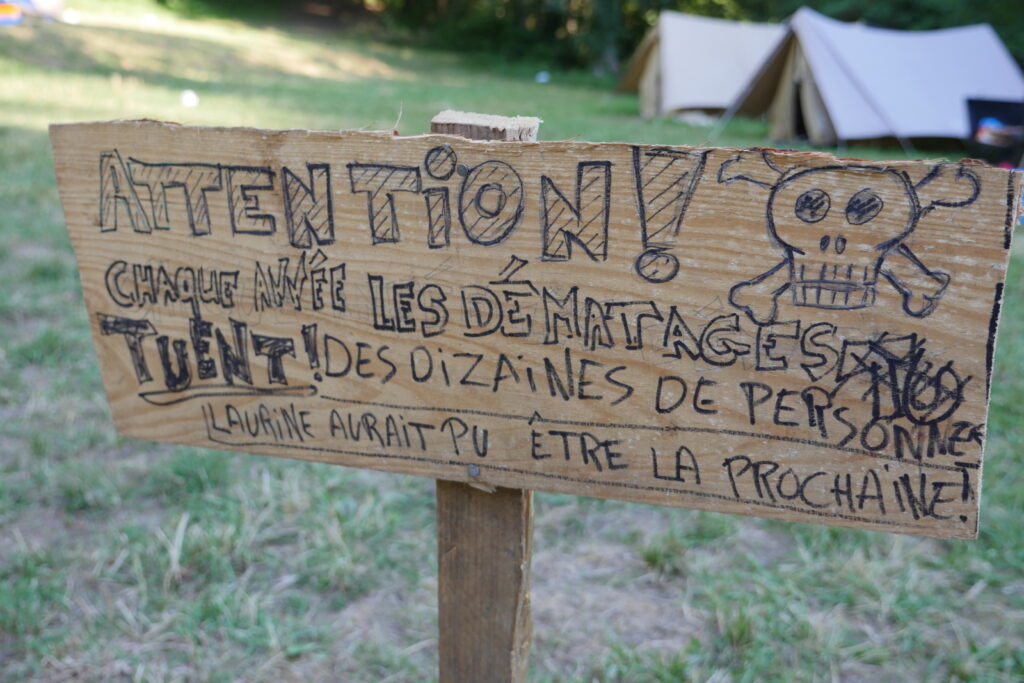 ATTENTION!
CHAQUE ANNÊE LES DÉMATAGES
TUENT! DES DIZAINES DE PERSONNES
LAURINE AURAIT PU ÊTRE LA PROCHAINE!